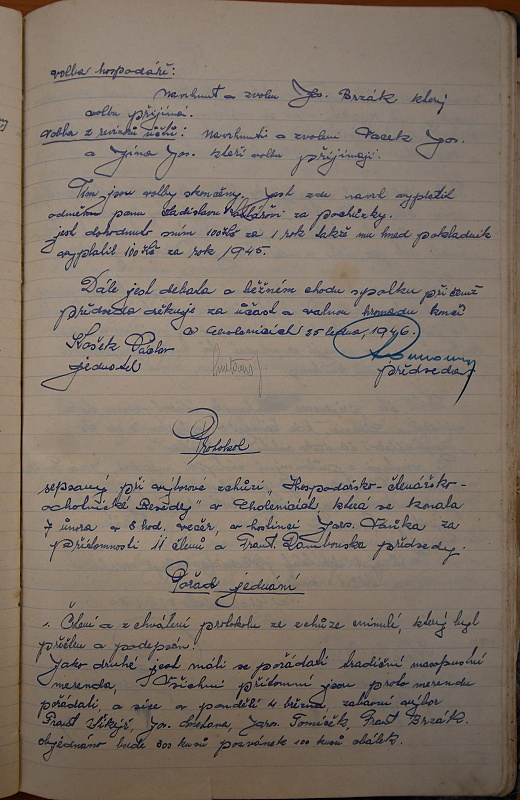 volba hospodáře:
Navrhnut a zvolen Jos. Brzák který
volbu příjímá.
Volba 2 revisorů účtů: Navrhnuti a zvoleni Vacek Jos.
a Jos. kteří volbu příjímají.
Tím jsou volby skončeny. Jest zde návrh vyplatit
odměnu panu Ladislavu za pochůzky.
jest dohodnuto s ním 100 Kčs za 1 rok takže mu hned pokladník
vyplatil 100 Kčs za rok 1945.
Dále jest debata o běžném chodu spolku při čemž
předseda děkuje za účast a valnou hromadu končí
V Cholenicích 25 ledna, 1946.
Košek Václav
jednatel předseda
Protokol
sepsaný při výborové schůzi „Hospodářsko-čtenářsko-
ochotnické Besedy" v Cholenicích, která se konala
7 února v 8 hod. večer, v hostinci Jaros. za
přítomnosti 11 členů a Frant. Dambouska předsedy.
Pořad jednání
1. Čtení a zchválení protokolu ze schůze minulé, který byl
přečten a podepsán.
Jako druhé jest máli se pořádati tradiční masopustní
merenda, Všichni přítomní jsou proto merendu
pořádati, a sice v pondělí 4 března, zábavní výbor
Frant Jos. Smetana, Jaros. Tomíček, Frant Brzák.
objednáno bude 300 kusů pozvánek 100 kusů obálek.